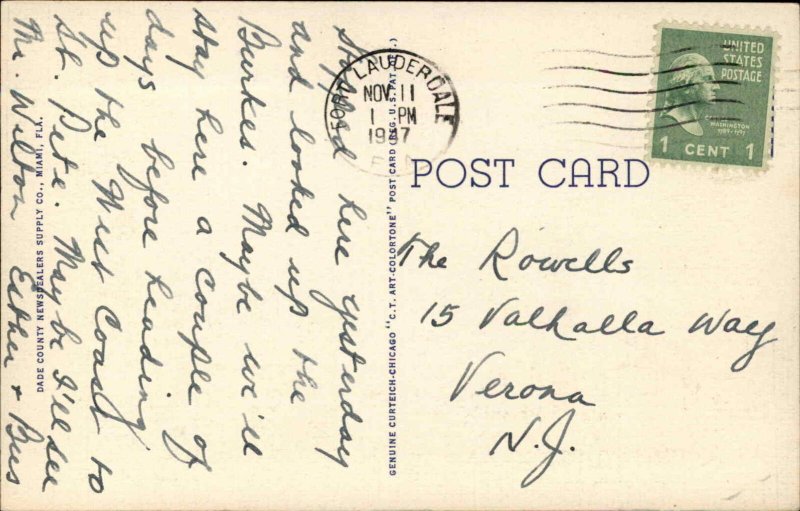 Stopped here yesterday
and looked up the
Burkes. Maybe we'll
stay here a couple of
days before heading
up the West Coast to
St. Pete. Maybe I'll see
Mr. Wilton Esther + Bus
DADE COUNTY NEWSDEALERS SUPPLY CO., MIAMI, FLA.
GENUINE CURTEICH-CHICAGO "C.T. ART-COLORTONE" POST CARD (REG. U.S. PAT. OFF.)
FORT LAUDERDALE
NOV 11
1 PM
1947
UNITED
STATES
POSTAGE
WASHINGTON
1 CENT 1
POST CARD
The Rowells
15 Valhalla Way
Verona
N.J.